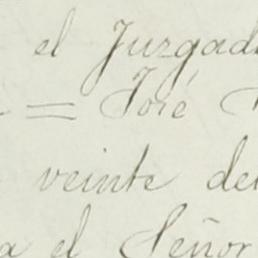 el Juzgad
= José
veinte de
a el Señor